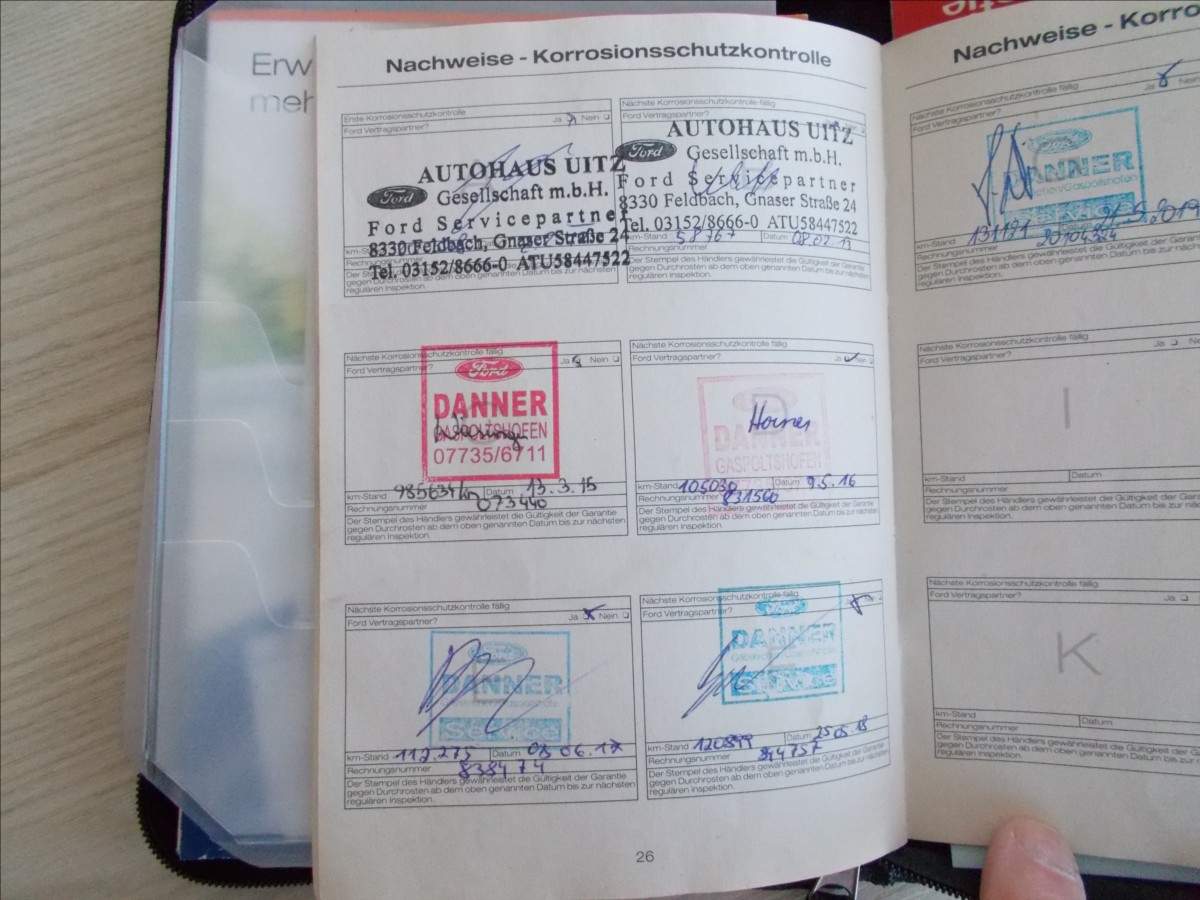 Erw
meh
Nachweise - Korrosionsschutzkontrolle
Erste Korrosionsschutzkontrolle
Ford Vertragspartner? Ja Nein
AUTOHAUS UITZ
Ford Gesellschaft m.b.H.
Ford Servicepartner
8330 Feldbach, Gnaser Straße 24
Tel. 03152/8666-0 ATU58447522
km-Stand
Rechnungsnummer
Der Stempel des Händlers gewährleistet die Gültigkeit der Garantie
gegen Durchrosten ab dem oben genannten Datum bis zur nächsten
regulären Inspektion.
Nächste Korrosionsschutzkontrolle fällig
Ford Vertragspartner?
AUTOHAUS UITZ
Ford Gesellschaft m.b.H.
Ford Servicepartner
8330 Feldbach, Gnaser Straße 24
Tel. 03152/8666-0 ATU58447522
km-Stand 57767 Datum 08.02.13
Rechnungsnummer
Der Stempel des Händlers gewährleistet die Gültigkeit der Garantie
gegen Durchrosten ab dem oben genannten Datum bis zur nächsten
regulären Inspektion.
Nächste Korrosionsschutzkontrolle fällig
Ford Vertragspartner? Ja Nein
Ford
DANNER
GASPOLTSHOFEN
07735/6711
km-Stand Datum 13.3.15
Rechnungsnummer 073440
Der Stempel des Händlers gewährleistet die Gültigkeit der Garantie
gegen Durchrosten ab dem oben genannten Datum bis zur nächsten
regulären Inspektion.
Nächste Korrosionsschutzkontrolle fällig
Ford Vertragspartner? Ja Nein
DANNER
GASPOLTSHOFEN
km-Stand 105030 Datum 9.5.16
Rechnungsnummer 831560
Der Stempel des Händlers gewährleistet die Gültigkeit der Garantie
gegen Durchrosten ab dem oben genannten Datum bis zur nächsten
regulären Inspektion.
Nächste Korrosionsschutzkontrolle fällig
Ford Vertragspartner? Ja Nein
Ford
DANNER
Service
km-Stand 112.275 Datum 03.06.17
Rechnungsnummer 838474
Der Stempel des Händlers gewährleistet die Gültigkeit der Garantie
gegen Durchrosten ab dem oben genannten Datum bis zur nächsten
regulären Inspektion.
Nächste Korrosionsschutzkontrolle fällig
Ford Vertragspartner?
Ford
DANNER
Service
km-Stand 120899 Datum 25.05.18
Rechnungsnummer 844757
Der Stempel des Händlers gewährleistet die Gültigkeit der Garantie
gegen Durchrosten ab dem oben genannten Datum bis zur nächsten
regulären Inspektion.
26
Nachweise - Korro
Nächste Korrosionsschutzkontrolle fällig
Ford Vertragspartner? Ja Nein
DANNER
km-Stand 131191
Rechnungsnummer
Der Stempel des Händlers gewährleistet die Gültigkeit der Garantie
gegen Durchrosten ab dem oben genannten Datum bis zur nächsten
regulären Inspektion.
Nächste Korrosionsschutzkontrolle fällig
Ford Vertragspartner? Ja Ne
I
km-Stand Datum
Rechnungsnummer
Der Stempel des Händlers gewährleistet die Gültigkeit der Garantie
gegen Durchrosten ab dem oben genannten Datum bis zur nächsten
regulären Inspektion.
Nächste Korrosionsschutzkontrolle fällig
Ford Vertragspartner? Ja
K
km-Stand Datum
Rechnungsnummer
Der Stempel des Händlers gewährleistet die Gültigkeit der
gegen Durchrosten ab dem oben genannten Datum bis zur
regulären Inspektion.